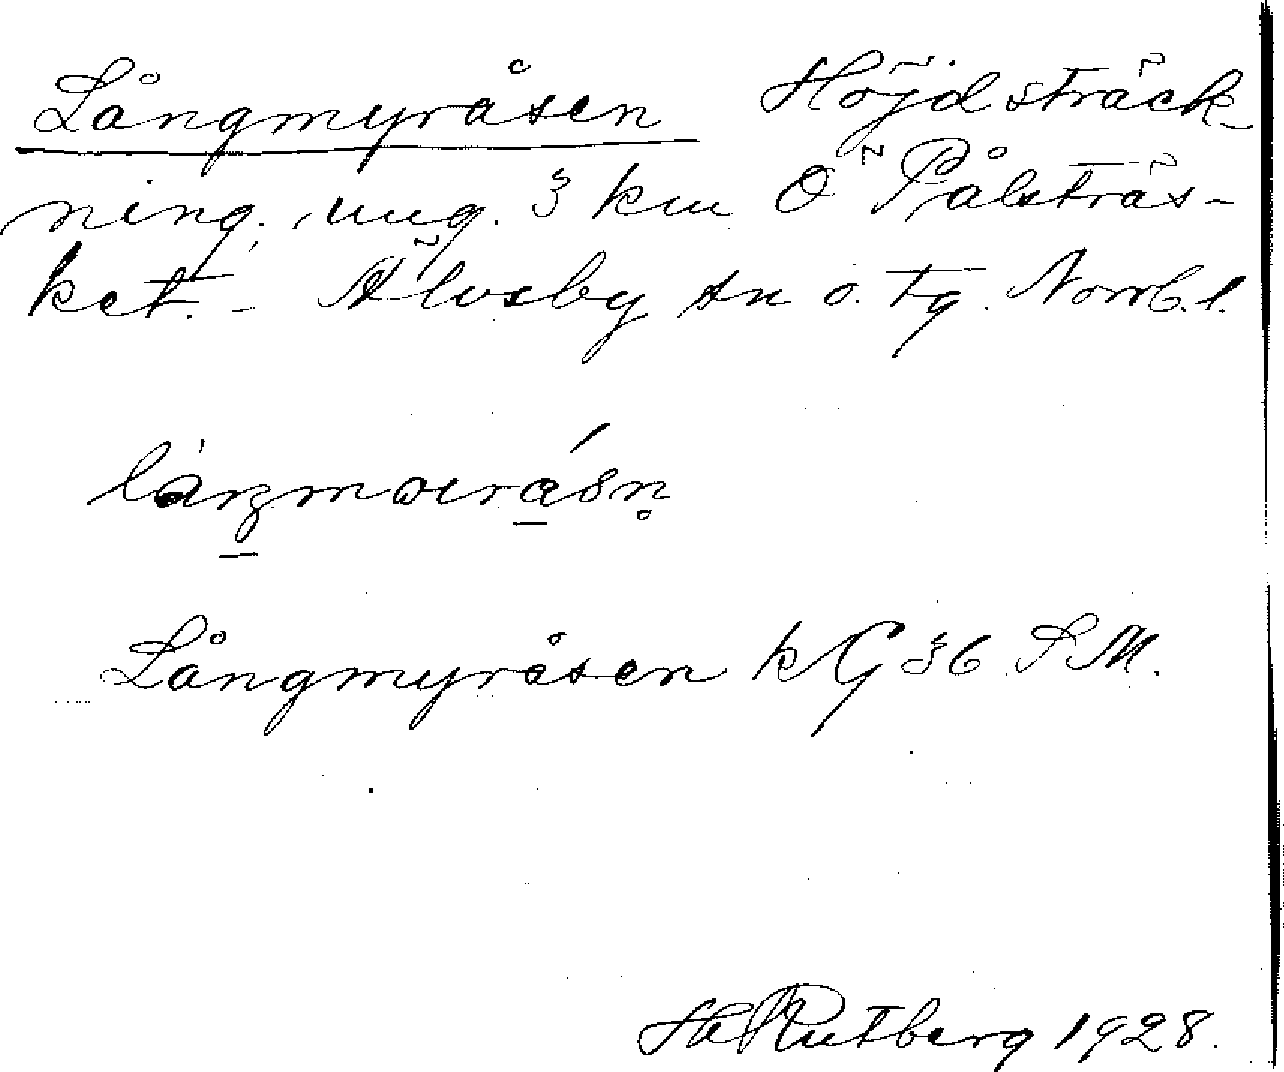 Långmyråsen Höjdsträck-
ning, ung. 3 km Ö Pålsträs-
ket. - Älvsby sn o. tg. Norrb. l.
Långmyråsen k G 36 S M.
H Rutberg 1928.